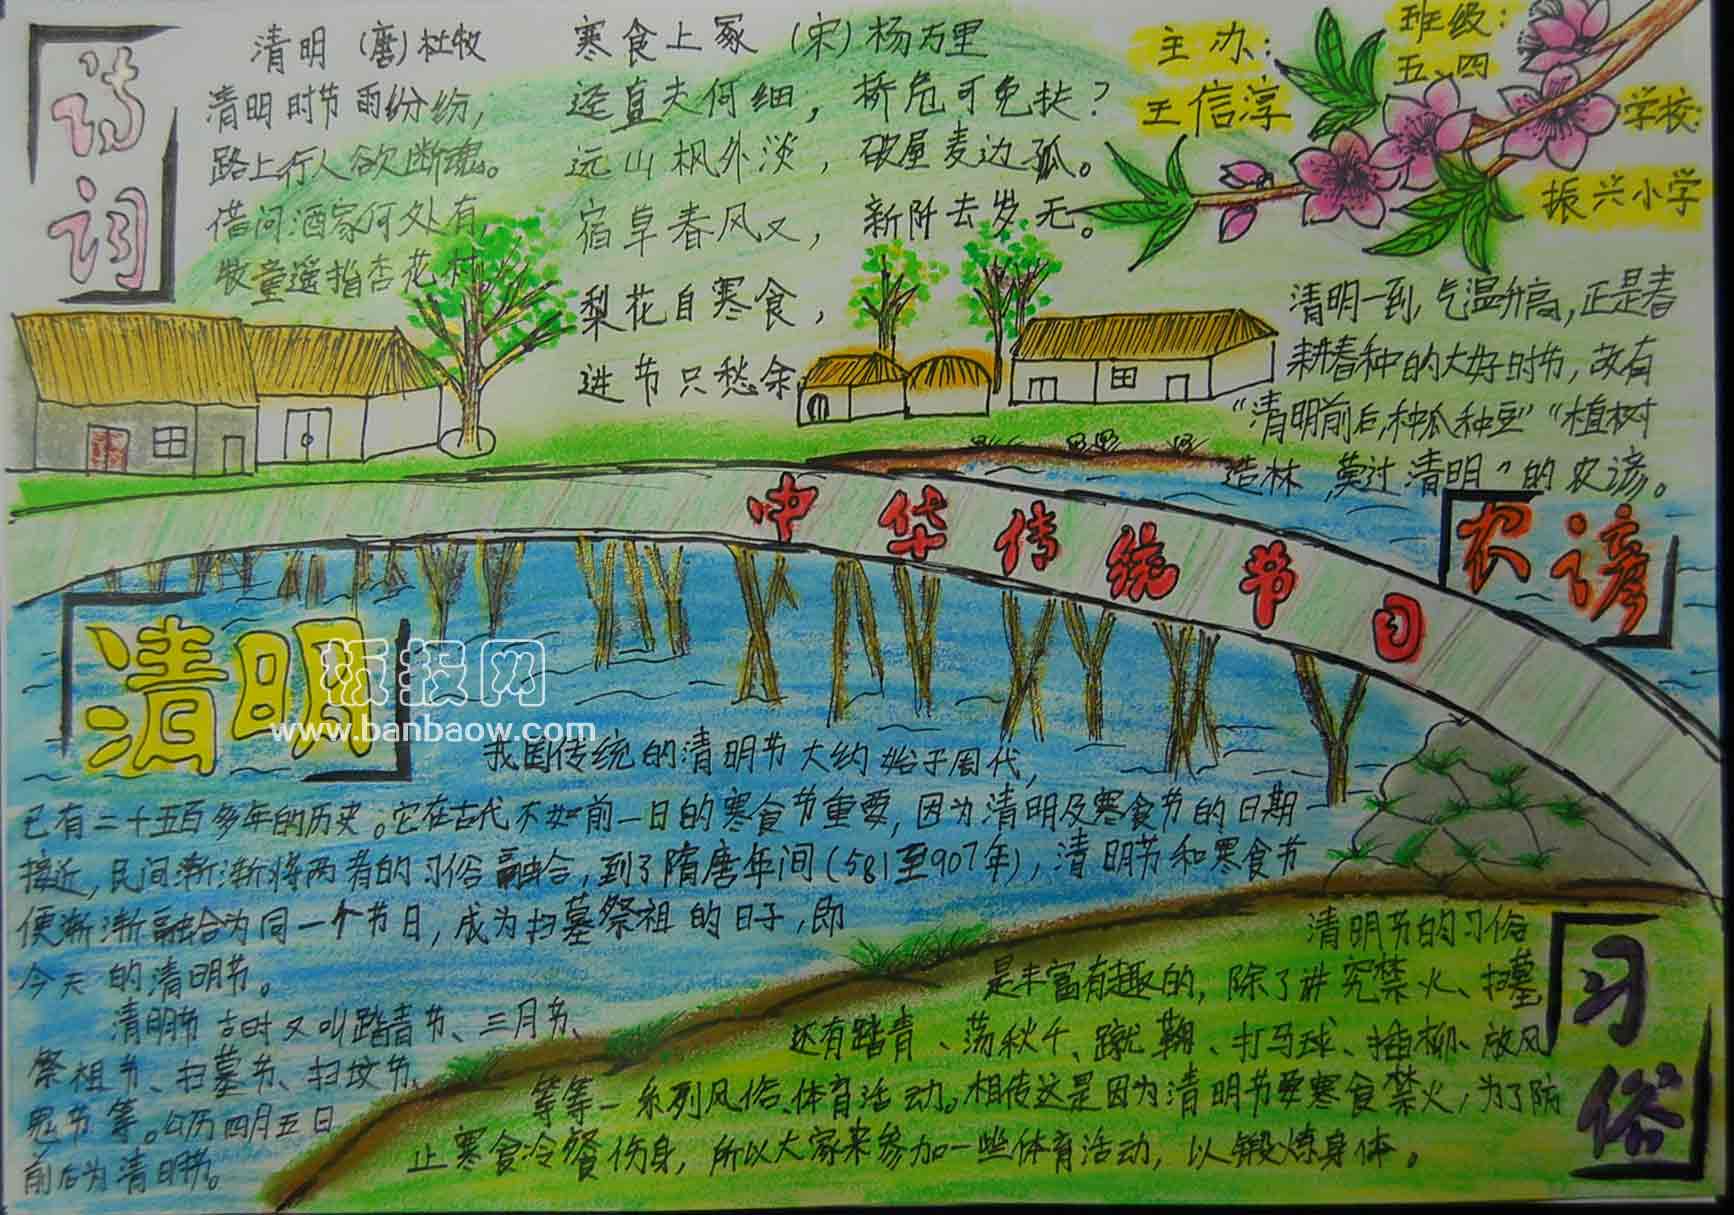 诗词
清明 (唐)杜牧
清明时节雨纷纷,
路上行人欲断魂。
借问酒家何处有,
牧童遥指杏花村。
寒食上冢 (宋)杨万里
迳直夫何细, 桥危可免扶?
远山枫外淡, 破屋麦边孤。
宿草春风又, 新阡去岁无。
梨花自寒食,
进节只愁余
主办:
王信淳
班级:
五、四
学校:
振兴小学
清明一到,气温升高,正是春
耕春种的大好时节,故有
“清明前后,种瓜种豆”“植树
造林,莫过清明”的农谚。
农谚
中华传统节日
清明
板报网
www.banbaow.com
我国传统的清明节大约始于周代,
已有二十五百多年的历史。它在古代不如前一日的寒食节重要,因为清明及寒食节的日期
接近,民间渐渐将两者的习俗融合,到了隋唐年间(581至907年),清明节和寒食节
便渐渐融合为同一个节日,成为扫墓祭祖的日子,即
今天的清明节。
清明节古时又叫踏青节、三月节、
祭祖节、扫墓节、扫坟节、
鬼节等。公历四月五日
前后为清明节。
习俗
清明节的习俗
是丰富有趣的,除了讲究禁火、扫墓
还有踏青、荡秋千、蹴鞠、打马球、插柳、放风
等等一系列风俗、体育活动。相传这是因为清明节要寒食禁火,为了防
止寒食冷餐伤身,所以大家来参加一些体育活动,以锻炼身体。